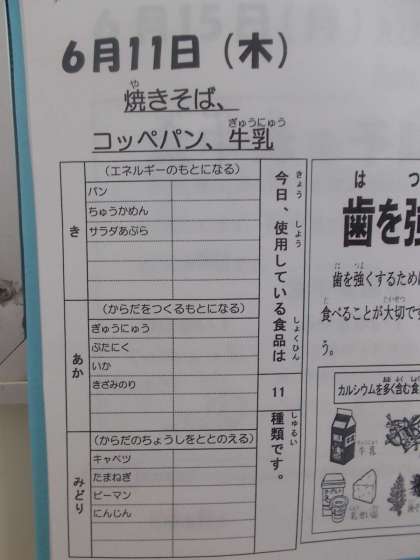 6月11日（木）
焼きそば、
コッペパン、牛乳
き
（エネルギーのもとになる）
パン
ちゅうかめん
サラダあぶら
あか
（からだをつくるもとになる）
ぎゅうにゅう
ぶたにく
いか
きざみのり
みどり
（からだのちょうしをととのえる）
キャベツ
たまねぎ
ピーマン
にんじん
今日、使用している食品は
11
種類です。
は つ
歯を強
歯を強くするため
食べることが大切です
う。
カルシウムを多く含む食
牛乳